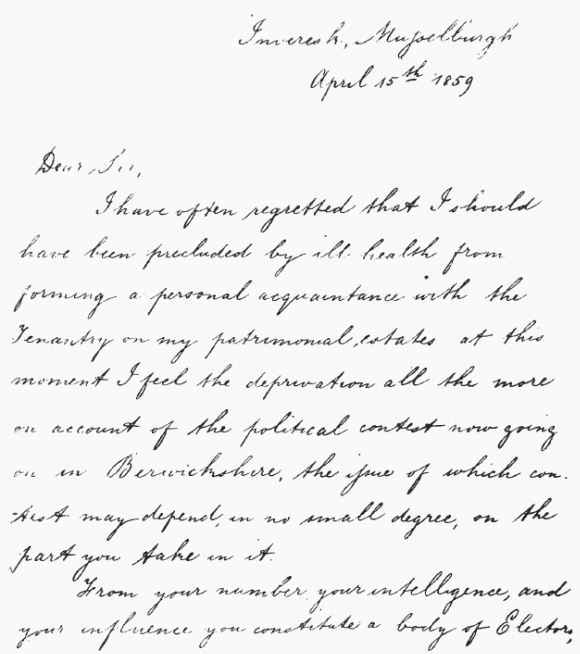 Inveresk, Musselburgh
April 15th 1859
Dear Sir,
I have often regretted that I should
have been precluded by ill health from
forming a personal acquaintance with the
Tenantry on my patrimonial, estates at this
moment I feel the deprivation all the more
on account of the political contest now going
on in Berwickshire, the issue of which con-
-test may depend, in no small degree, on the
part you take in it.
From your number your intelligence, and
your influence you constitute a body of Electors,